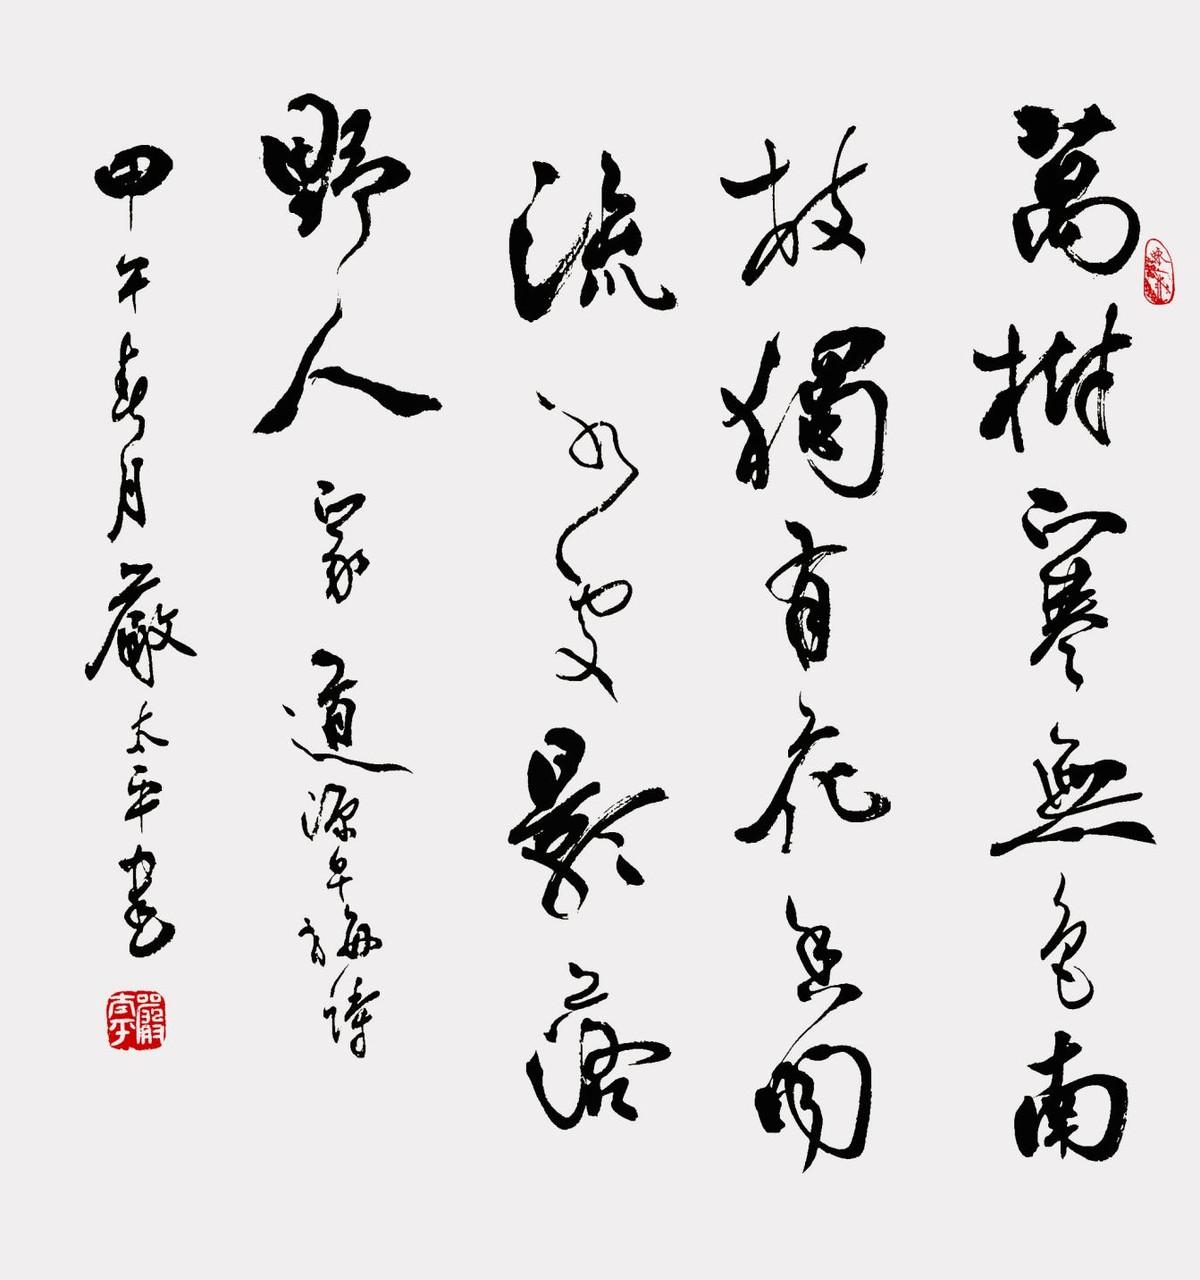 萬樹寒無色南
枝獨有花香聞
流水處影落
野人家道源早梅詩
甲午春月嚴太平書
嚴太平